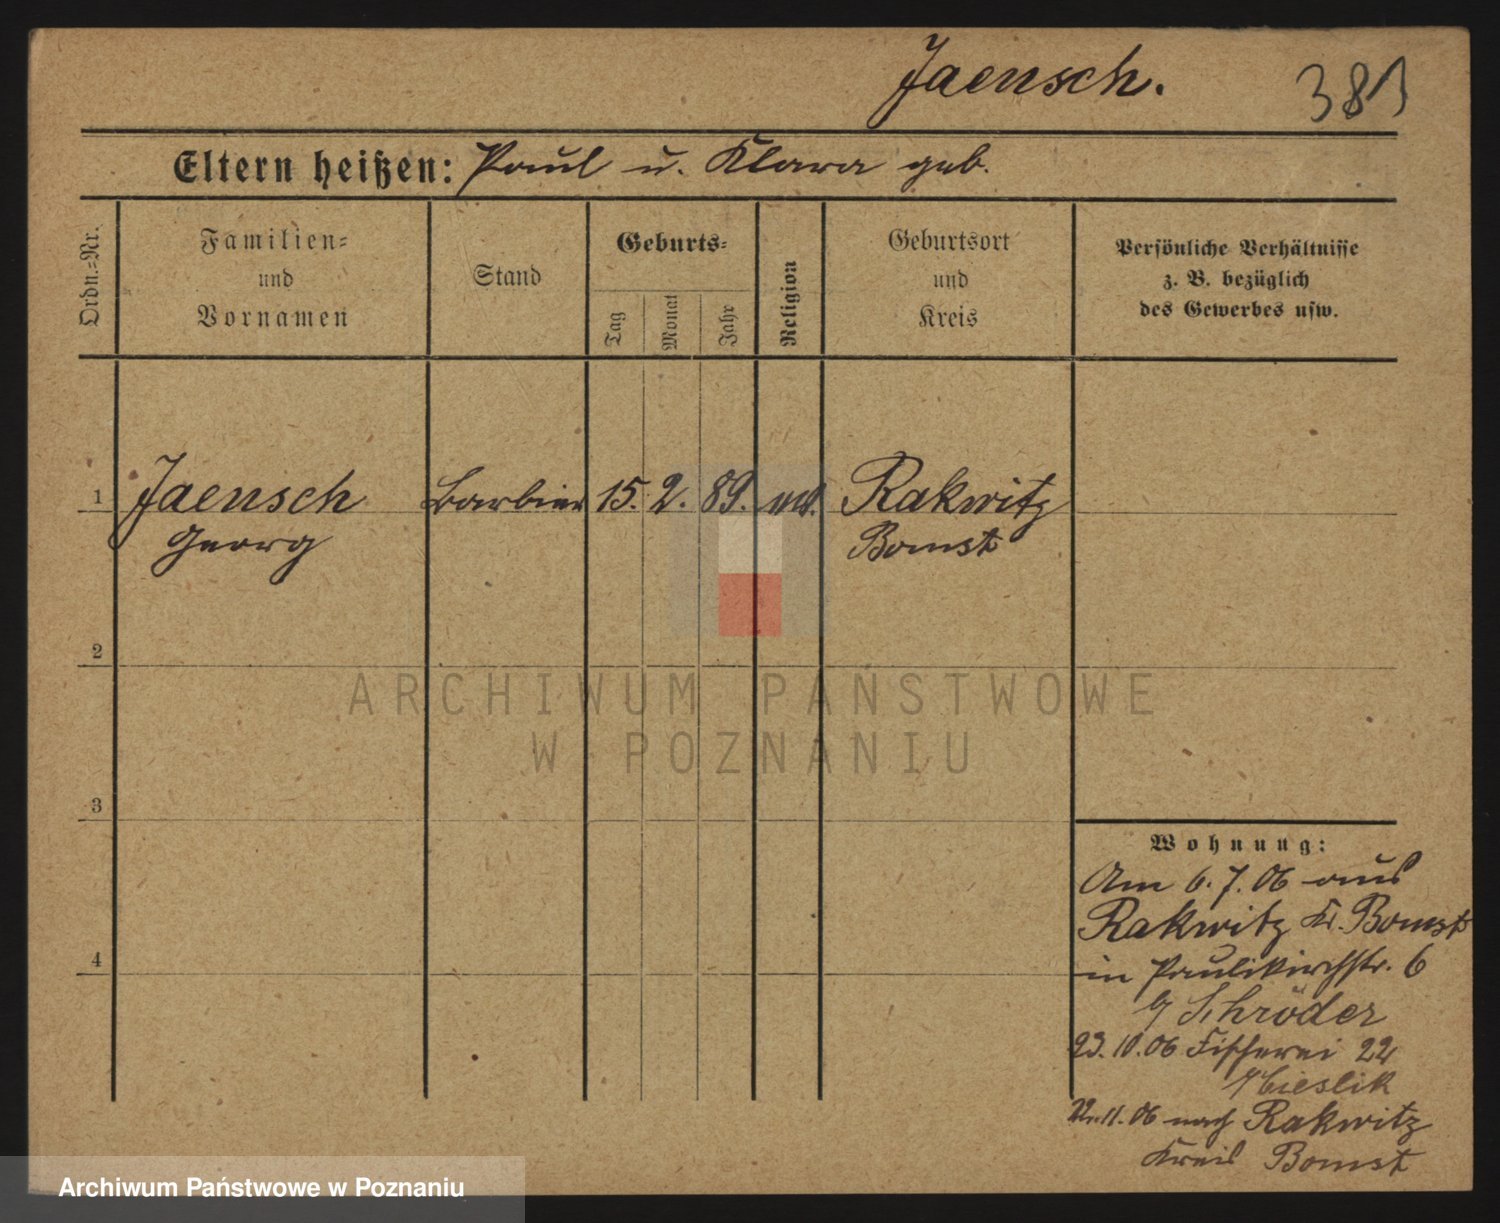 Jaensch.
381
Eltern heißen: Paul u. Klara geb.
Ordn.-Nr.
Familien-
und
Vornamen
Stand
Geburts-
Tag
Monat
Jahr
Religion
Geburtsort
und
Kreis
Persönliche Verhältnisse
z. B. bezüglich
des Gewerbes usw.
1 Jaensch Barbier 15. 2. 89. Rakwitz
Georg Bomst
2
ARCHIWUM PAŃSTWOWE
W POZNANIU
3
Wohnung:
Am 6. 7. 06 aus
Rakwitz Kr. Bomst
4
in Paulikirchstr. 6
Schröder
23. 10. 06 Fischerei 22
Cieslik
11. 06 nach Rakwitz
Kreis Bomst
Archiwum Państwowe w Poznaniu